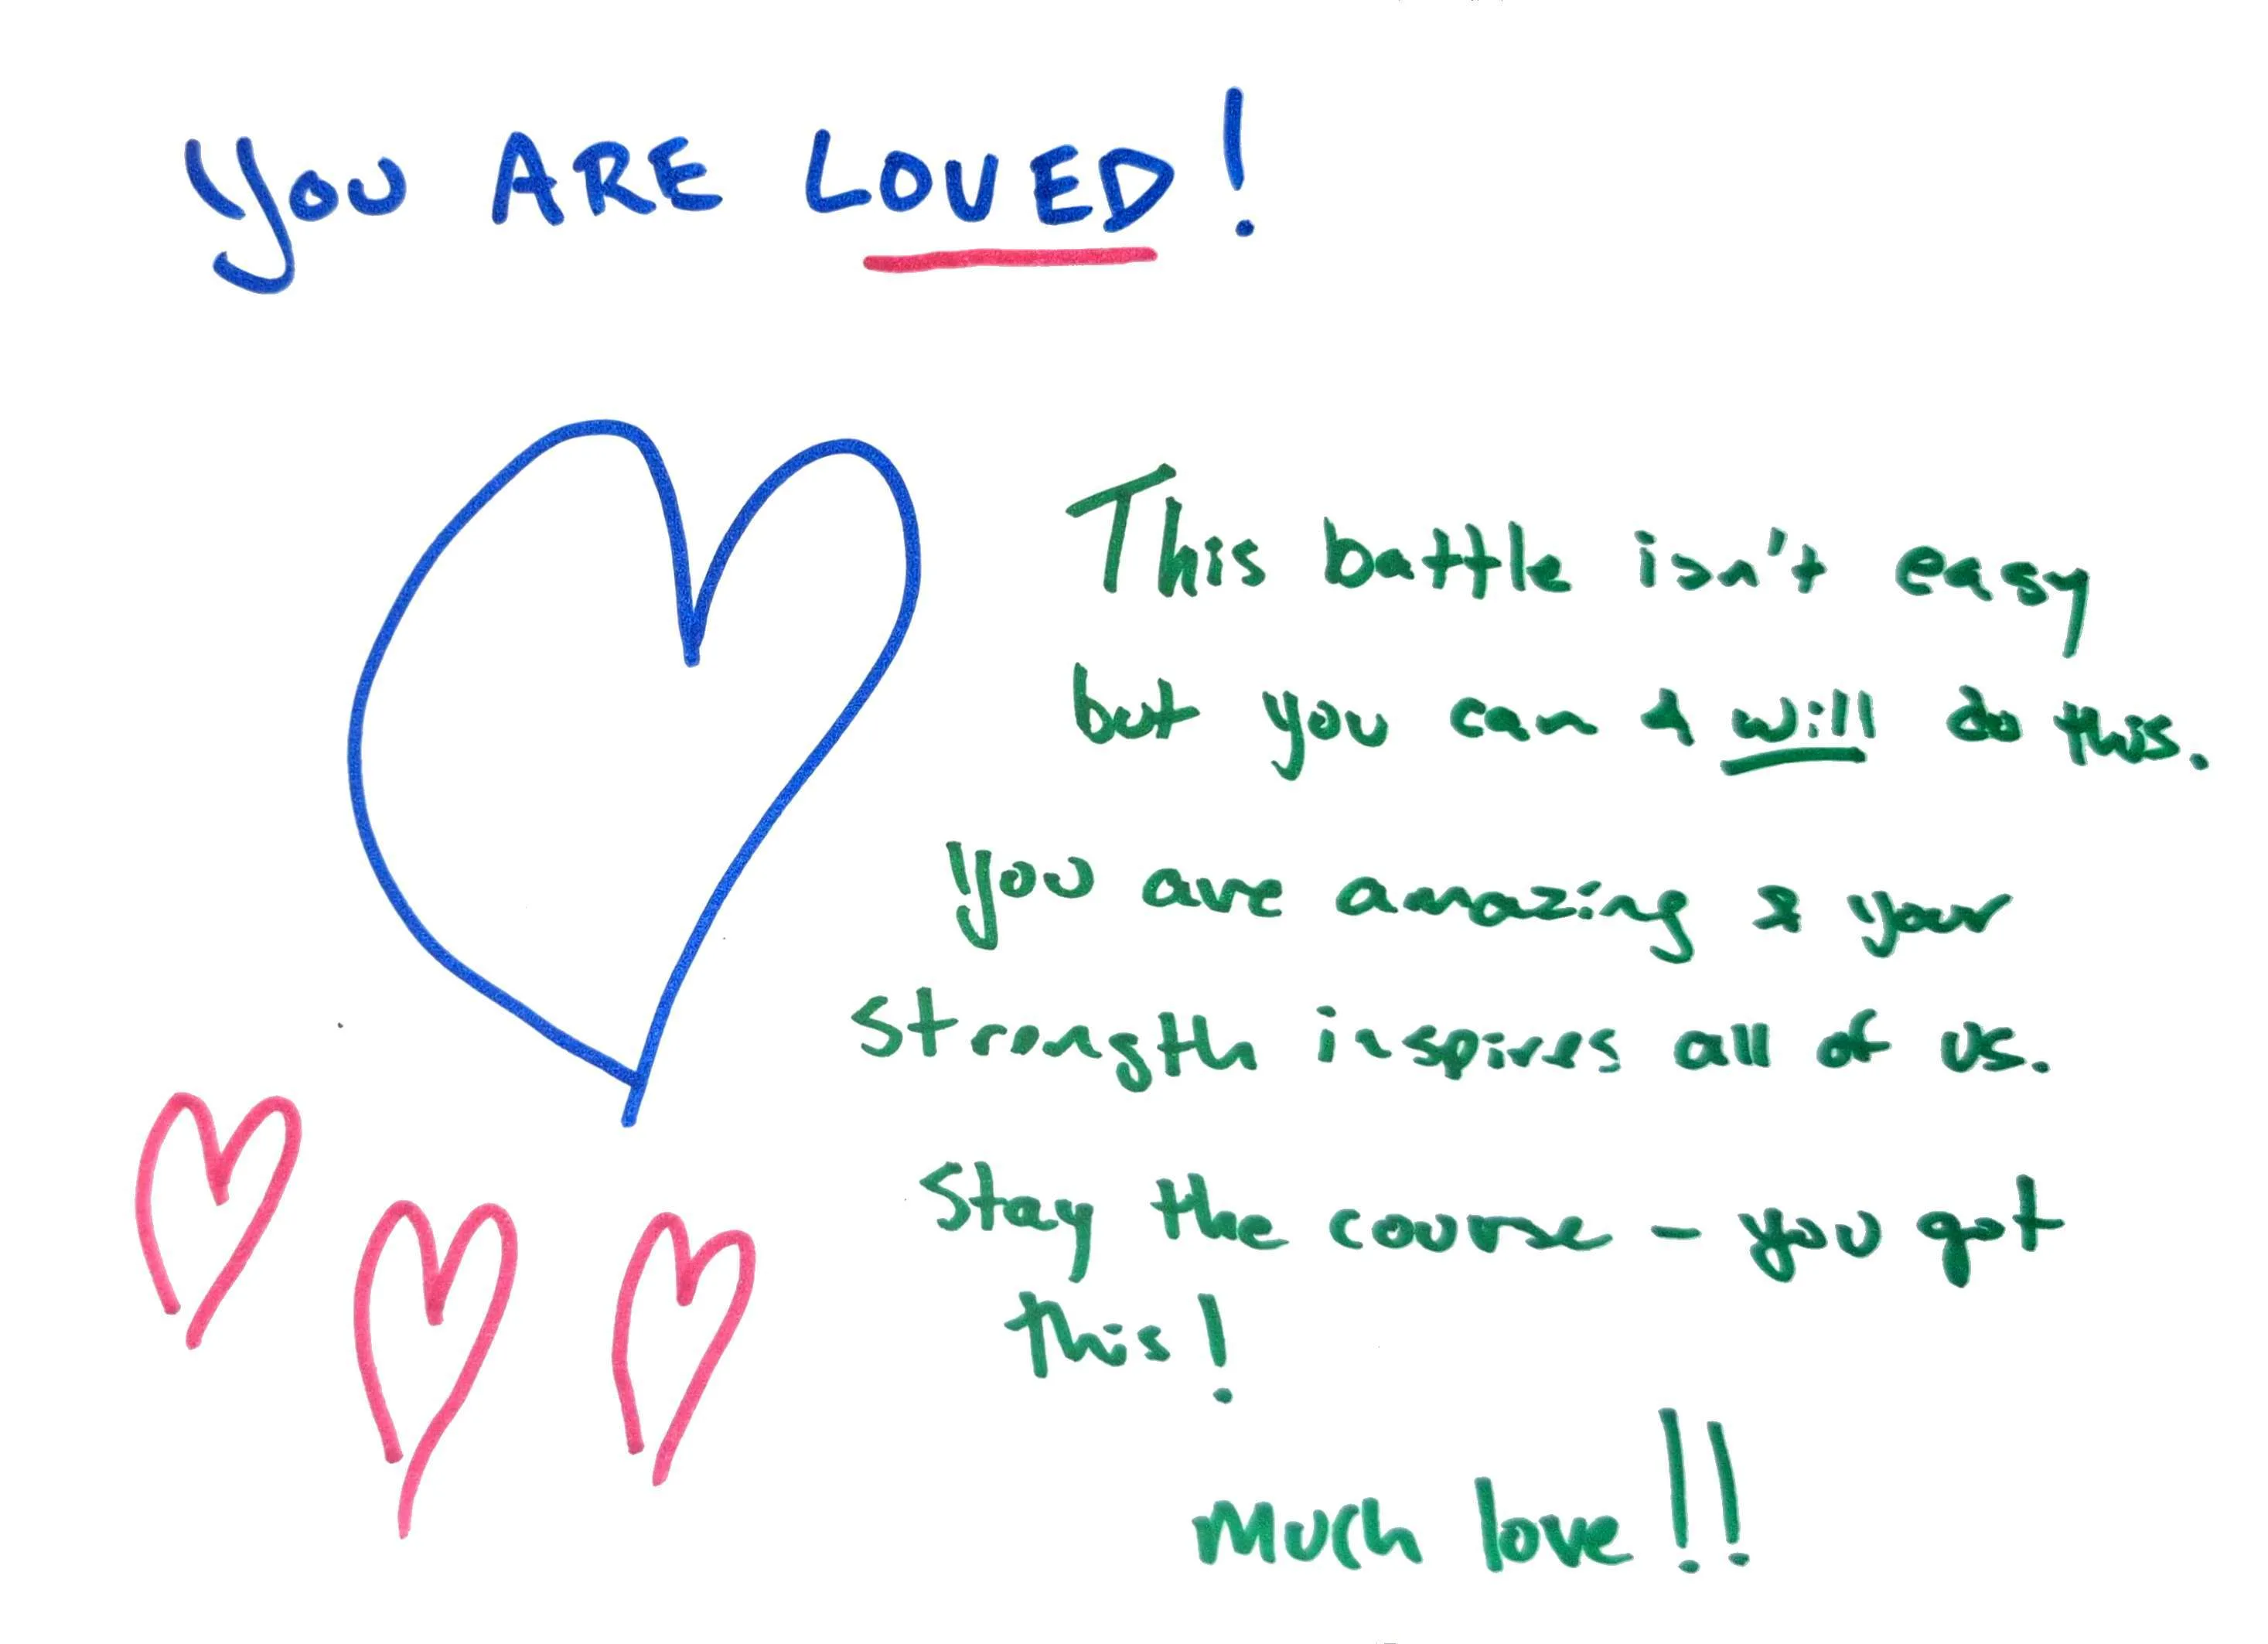 You ARE LOVED!
This battle isn't easy
but you can & will do this.
You are amazing & your
strength inspires all of us.
Stay the course - you got
this!
Much love!!